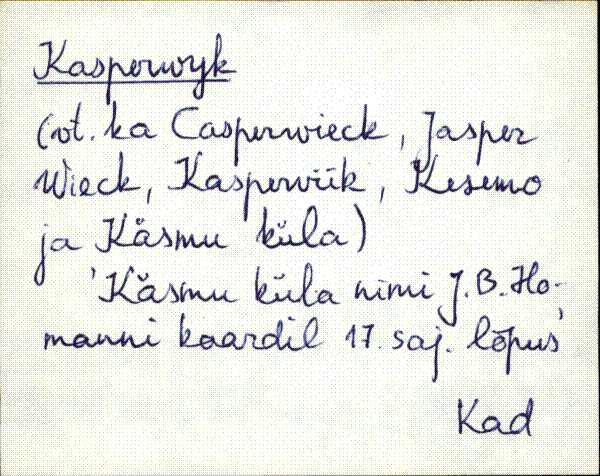 Kasperwyk
(vt. ka Casperwieck, Jasper
Wieck, Kasperviik, Kesemo
ja Käsmu küla)
'Käsmu küla nimi J.B. Ho-
manni kaardil 17. saj. lõpus'
Kad